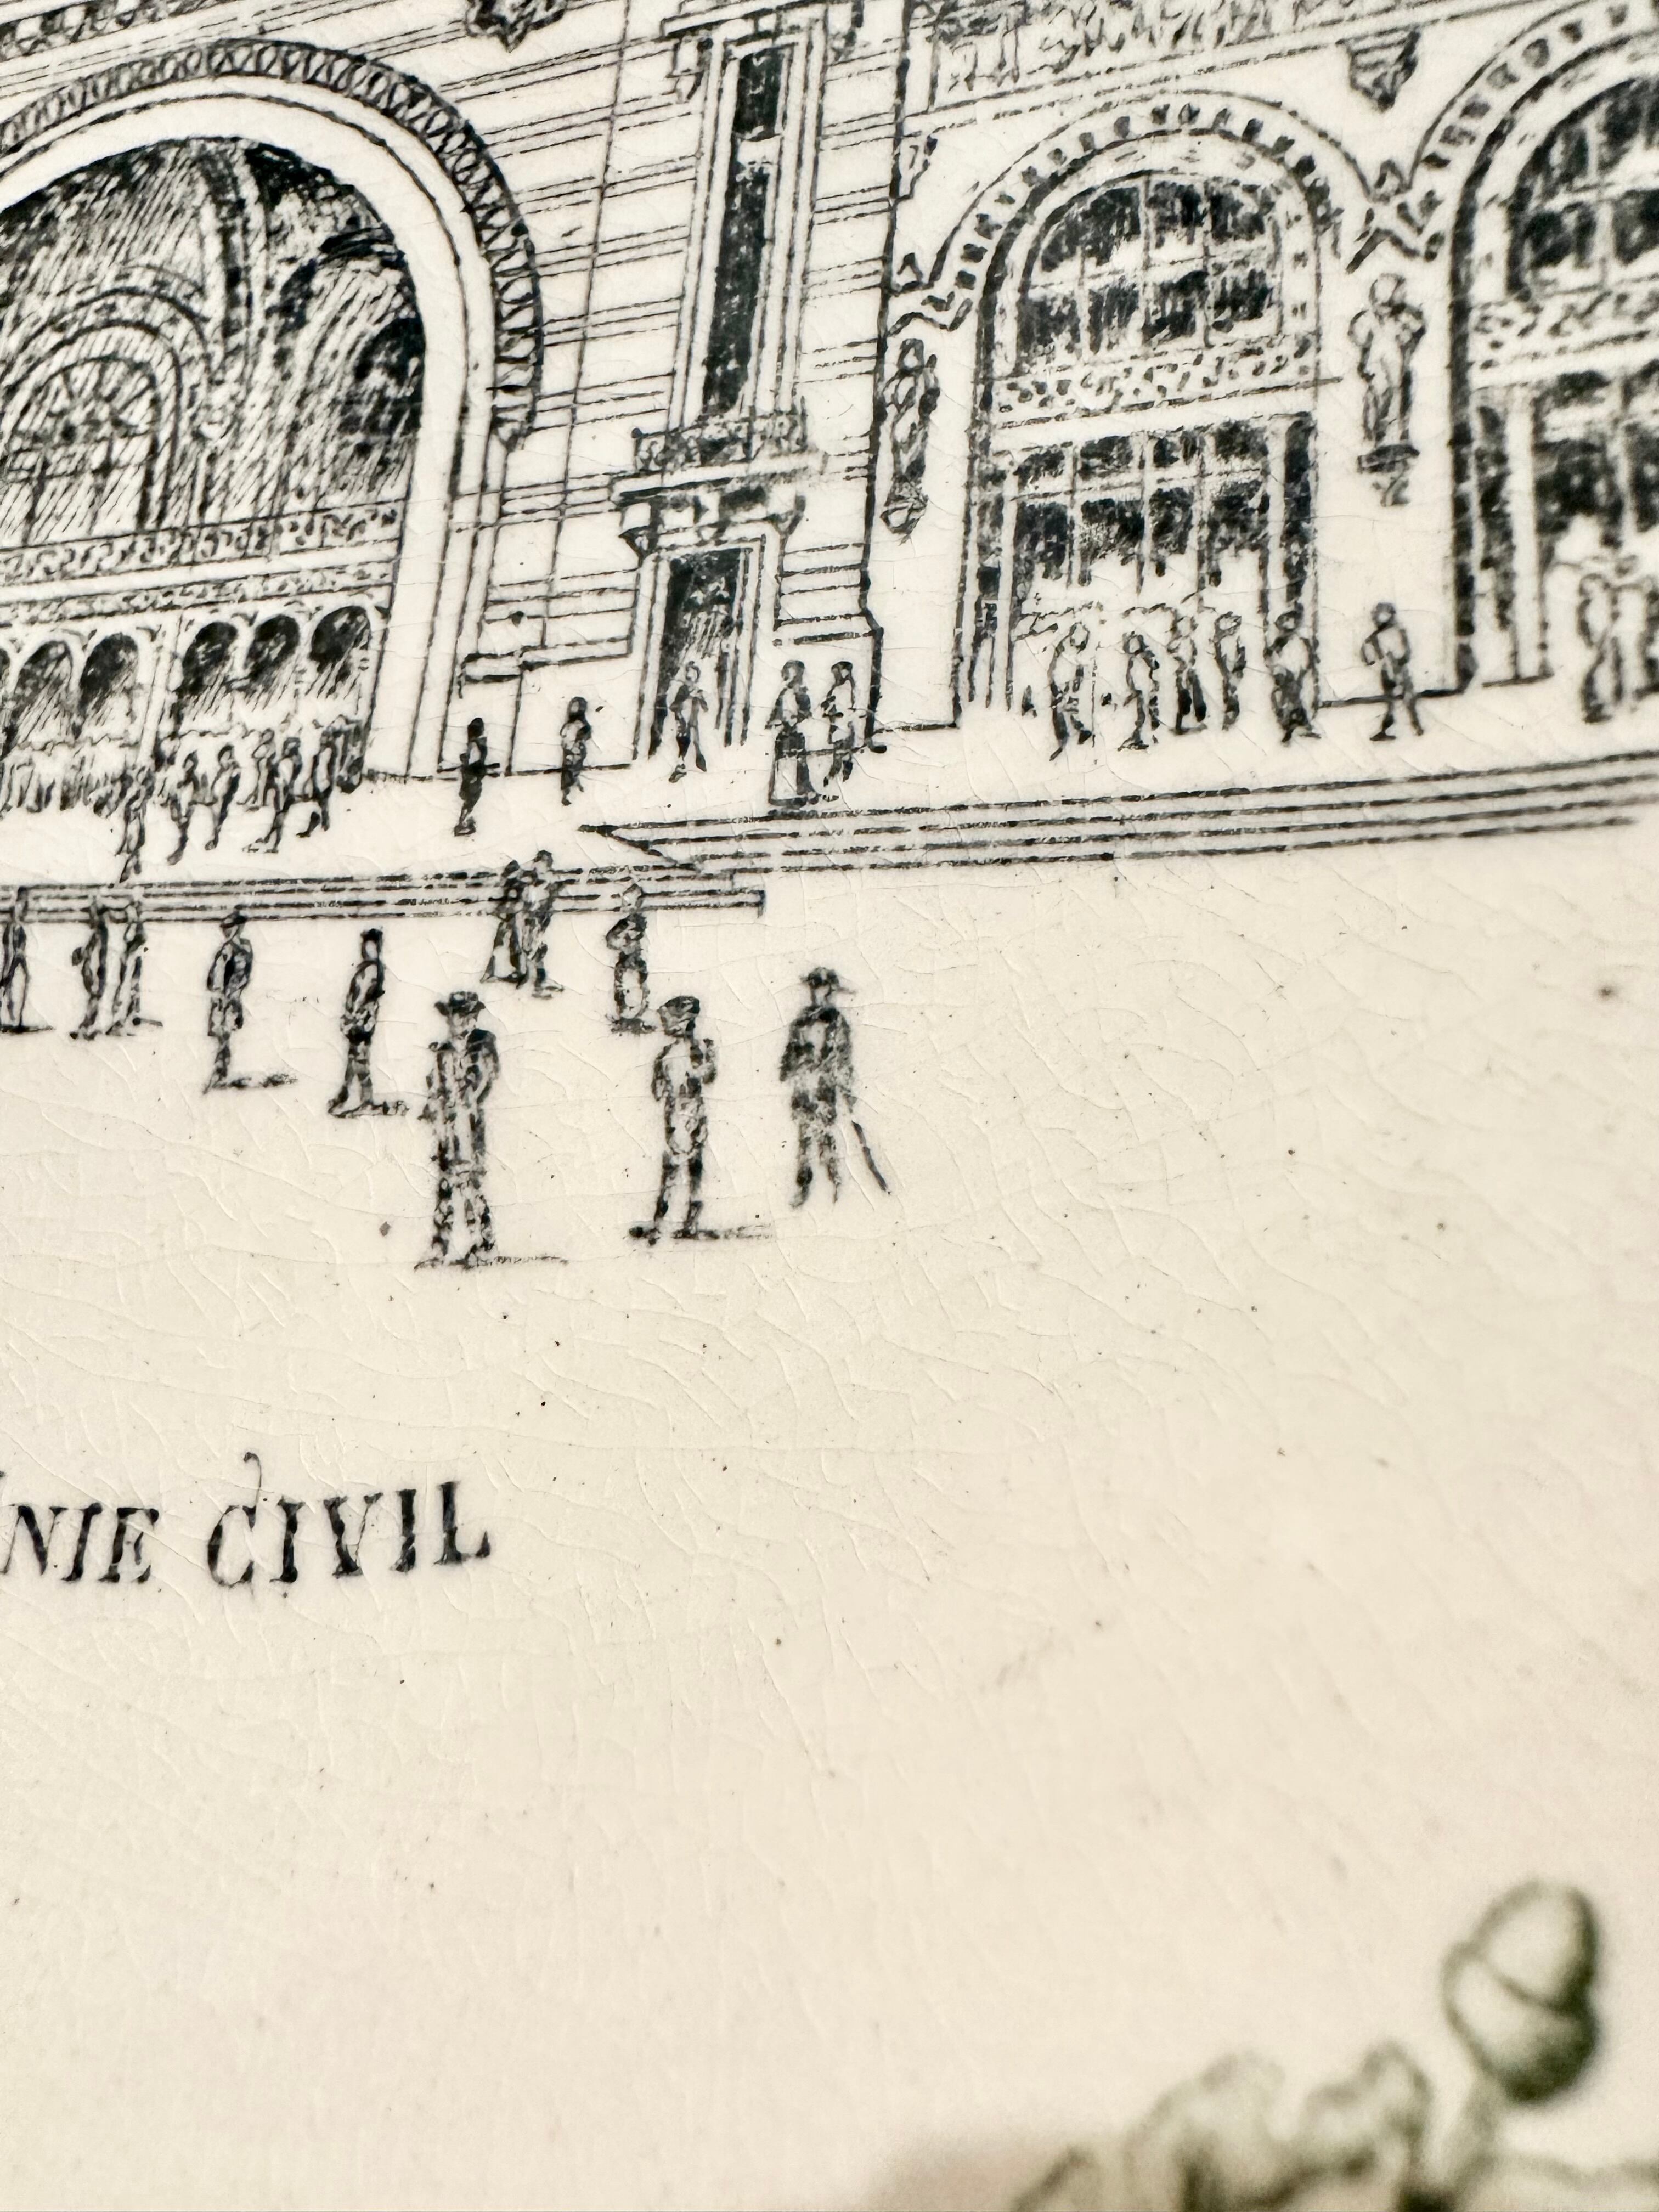 NIE CIVIL